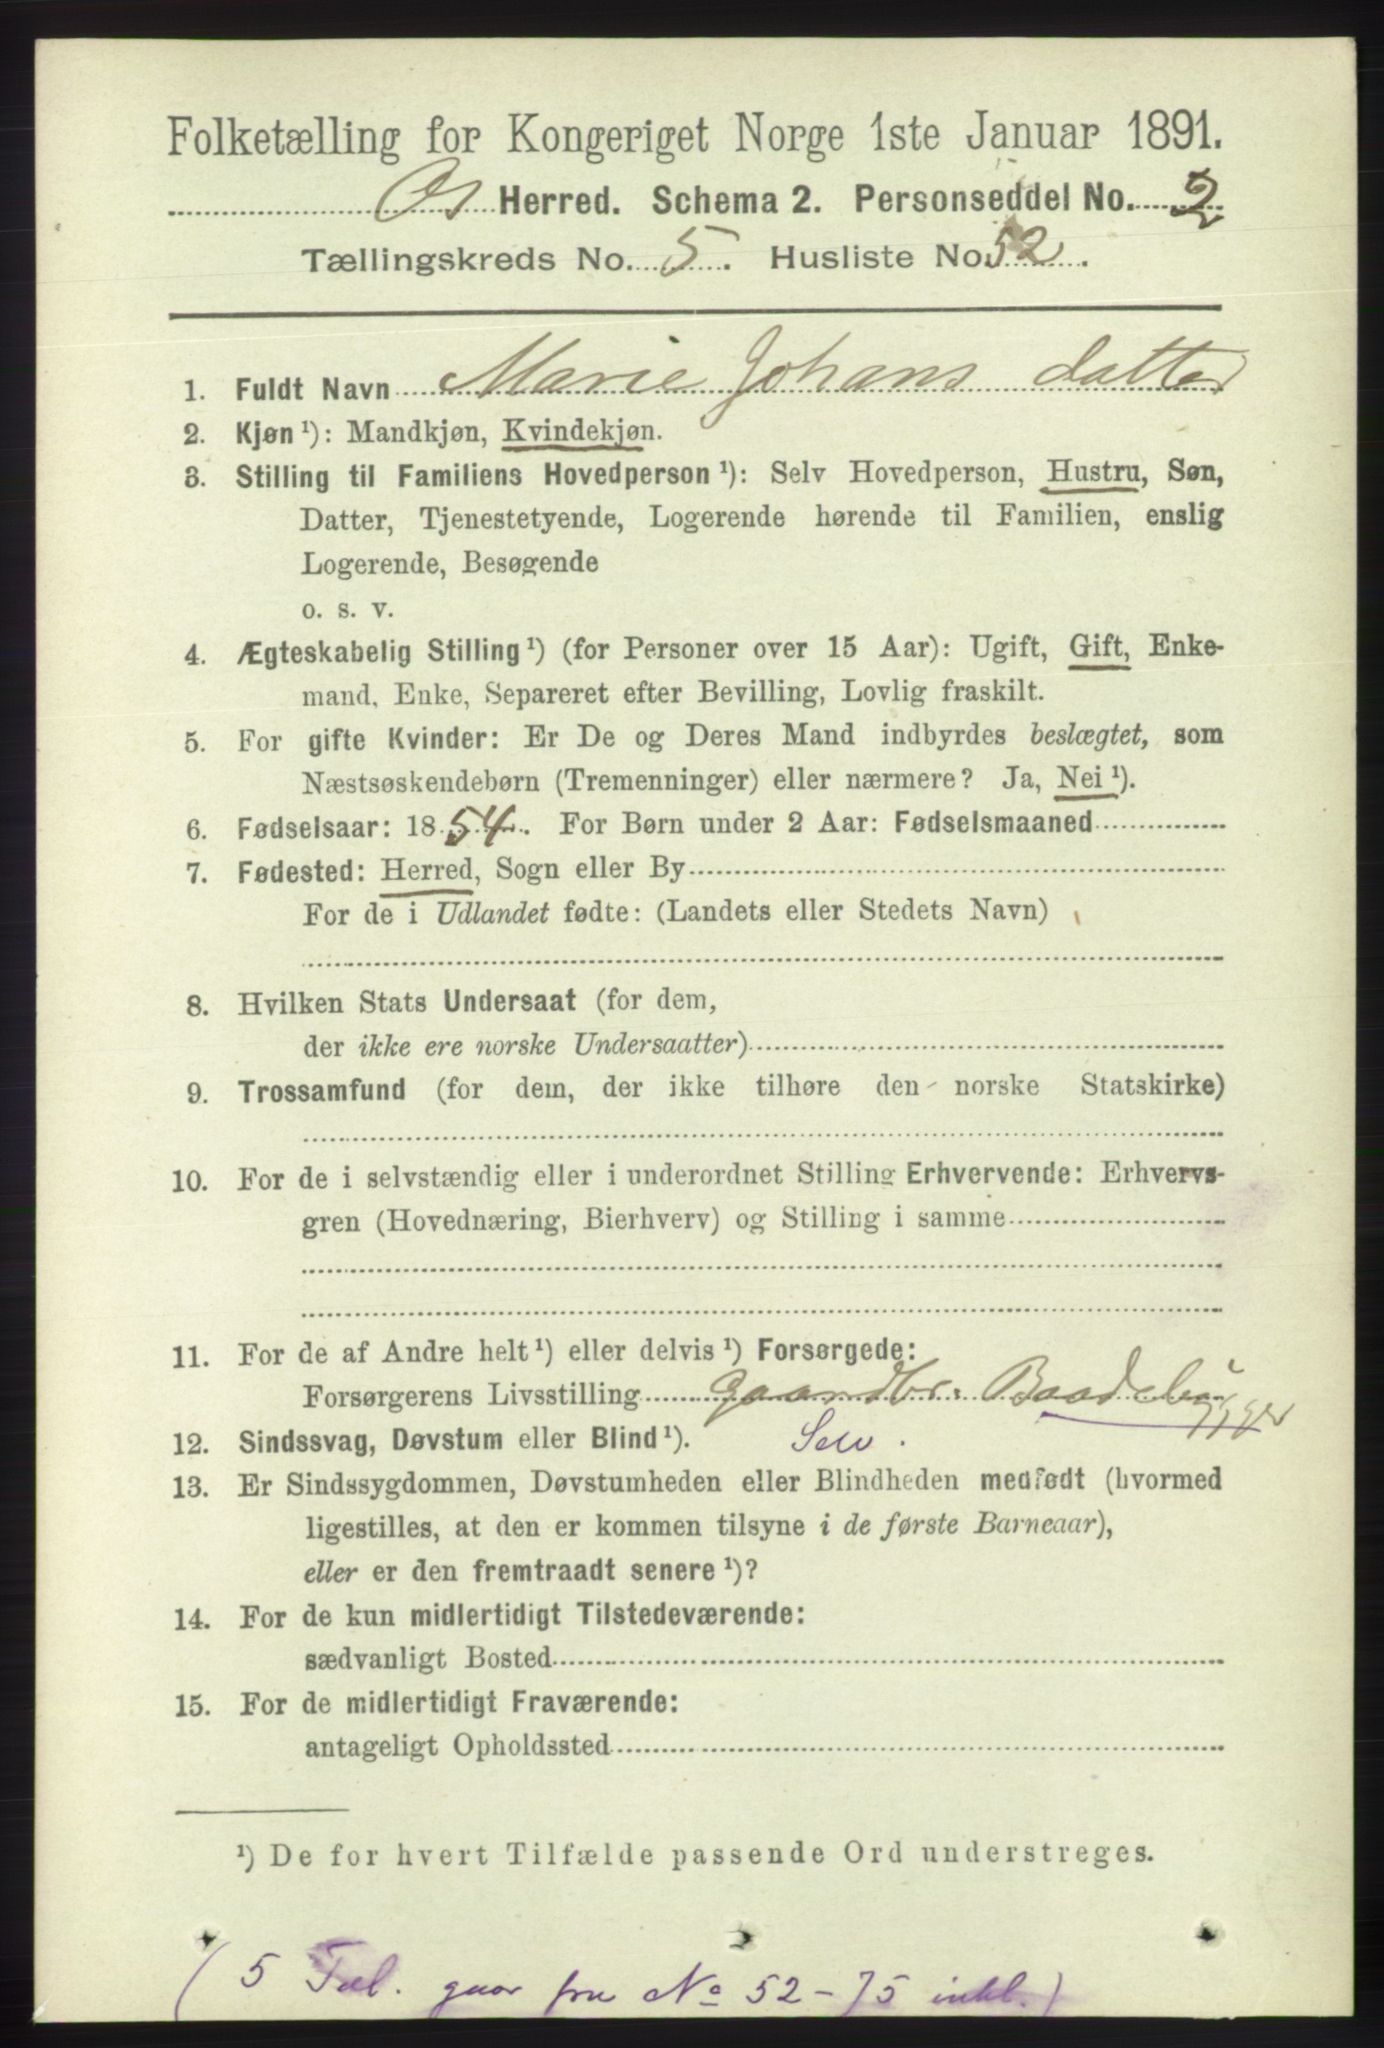 Folketælling for Kongeriget Norge 1ste Januar 1891.
Os Herred. Schema 2. Personseddel No. 2
Tællingskreds No. 5. Husliste No. 52.
1. Fuldt Navn Marie Johans datter
2. Kjøn ¹): Mandkjøn, Kvindekjøn.
3. Stilling til Familiens Hovedperson ¹): Selv Hovedperson, Hustru, Søn,
Datter, Tjenestetyende, Logerende hørende til Familien, enslig
Logerende, Besøgende
o. s. v.
4. Ægteskabelig Stilling ¹) (for Personer over 15 Aar): Ugift, Gift, Enke-
mand, Enke, Separeret efter Bevilling, Lovlig fraskilt.
5. For gifte Kvinder: Er De og Deres Mand indbyrdes beslægtet, som
Næstsøskendebørn (Tremenninger) eller nærmere? Ja, Nei ¹).
6. Fødselsaar: 1854. For Børn under 2 Aar: Fødselsmaaned
7. Fødested: Herred, Sogn eller By
For de i Udlandet fødte: (Landets eller Stedets Navn)
8. Hvilken Stats Undersaat (for dem,
der ikke ere norske Undersaatter)
9. Trossamfund (for dem, der ikke tilhøre den norske Statskirke)
10. For de i selvstændig eller i underordnet Stilling Erhvervende: Erhvervs-
gren (Hovednæring, Bierhverv) og Stilling i samme
11. For de af Andre helt ¹) eller delvis ¹) Forsørgede:
Forsørgerens Livsstilling Gaardbr. Baadebÿgger
12. Sindssvag, Døvstum eller Blind ¹). Selv.
13. Er Sindssygdommen, Døvstumheden eller Blindheden medfødt (hvormed
ligestilles, at den er kommen tilsyne i de første Barneaar),
eller er den fremtraadt senere ¹)?
14. For de kun midlertidigt Tilstedeværende:
sædvanligt Bosted
15. For de midlertidigt Fraværende:
antageligt Opholdssted
¹) De for hvert Tilfælde passende Ord understreges.
(5 Tæl. gaar fra No 52-75 inkl.)